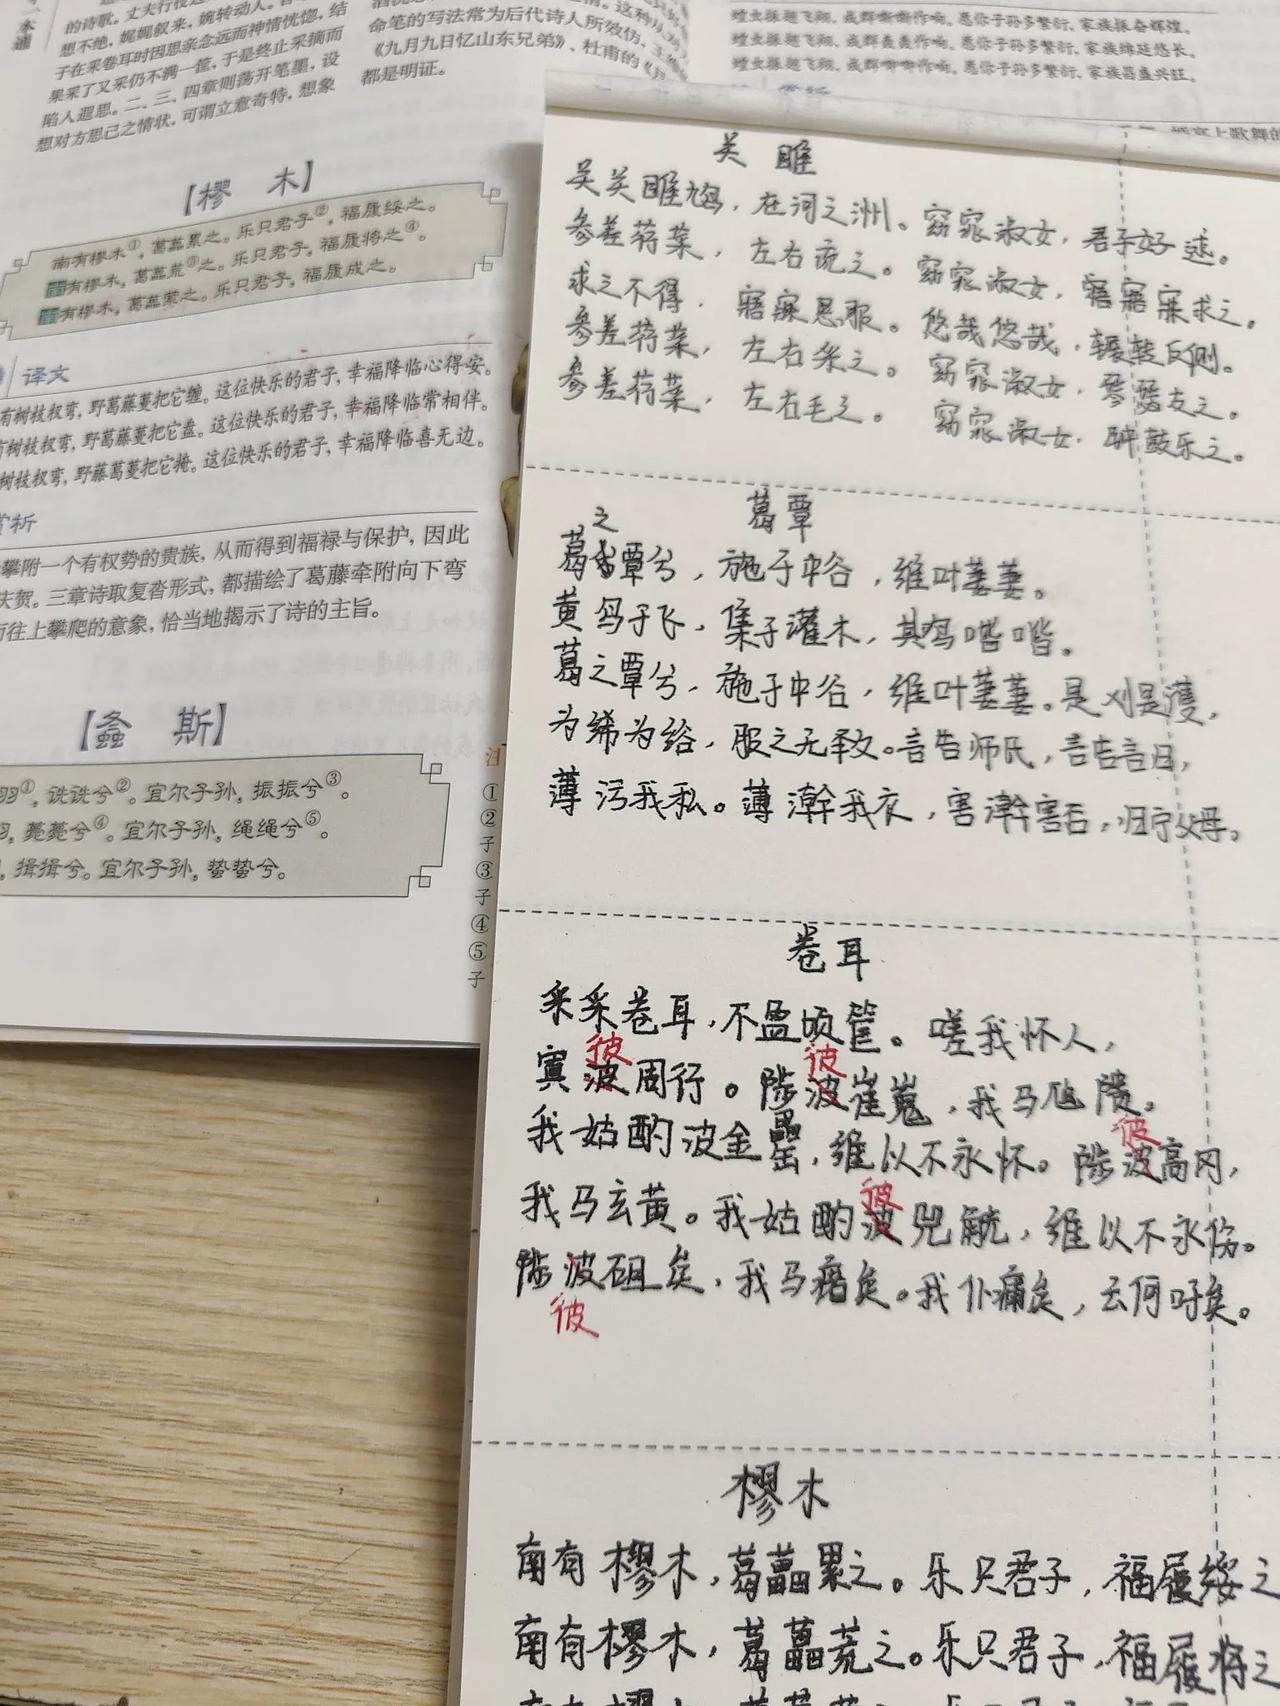 的诗歌。丈夫行役
想不绝，娓娓叙来，婉转动人。
于在采卷耳时因思亲念远而神情恍惚，结
果采了又采仍不满一筐，于是终止采摘而
陷人遐思。二、三、四章则荡开笔墨，设
想对方思己之情状，可谓立意奇特，想象
命笔的写法常为后代诗人所效仿，王维
《九月九日忆山东兄弟》、杜甫的《月
都是明证。
【樛 木】
南有樛木①，葛藟累之。乐只君子②，福履绥之。
南有樛木，葛藟荒③之。乐只君子，福履将之④。
南有樛木，葛藟萦之。乐只君子，福履成之。
译文
有树枝杈弯，野葛藤蔓把它缠。这位快乐的君子，幸福降临心得安。
有树枝杈弯，野葛藤蔓把它盘。这位快乐的君子，幸福降临常相伴。
树枝杈弯，野藤葛蔓把它掩。这位快乐的君子，幸福降临喜无边。
赏析
攀附一个有权势的贵族，从而得到福禄与保护，因此
庆贺。三章诗取复沓形式，都描绘了葛藤牵附向下弯
而往上攀爬的意象，恰当地揭示了诗的主旨。
【螽 斯】
羽①，诜诜兮②。宜尔子孙，振振兮③。
羽，薨薨兮④。宜尔子孙，绳绳兮⑤。
，揖揖兮。宜尔子孙，蛰蛰兮。
注
①
②
子
③
子
④
⑤
子
螳虫振翅飞翔，成群嘶嘶作响。愿你子孙多繁衍，家族振奋辉煌。
螳虫振翅飞翔，成群轰轰作响。愿你子孙多繁衍，家族绵延悠长。
螳虫振翅飞翔，成群唧唧作响。愿你子孙多繁衍，家族昌盛兴旺。
赏析
关 雎
关关雎鸠，在河之洲。窈窕淑女，君子好逑。
参差荇菜，左右流之。窈窕淑女，寤寐寐求之。
求之不得，寤寐思服。悠哉悠哉，辗转反侧。
参差荇菜，左右采之。窈窕淑女，琴瑟友之。
参差荇菜，左右毛之。窈窕淑女，钟鼓乐之。
葛覃
之
葛覃兮，施于中谷，维叶萋萋。
黄鸟于飞，集于灌木，其鸣喈喈。
葛之覃兮，施于中谷，维叶萋萋。是刈是濩，
为絺为绤，服之无斁。言告师氏，言告言归，
薄污我私。薄澣我衣，害澣害否，归宁父母。
卷耳
采采卷耳，不盈顷筐。嗟我怀人，
彼 彼
寘波周行。陟波崔嵬，我马虺隤。
彼
我姑酌波金罍，维以不永怀。陟波高冈，
彼
我马玄黄。我姑酌波兕觥，维以不永伤。
陟波砠矣，我马瘏矣。我仆痡矣，云何吁矣。
彼
樛木
南有樛木，葛藟累之。乐只君子，福履绥之
南有樛木，葛藟荒之。乐只君子，福履将之